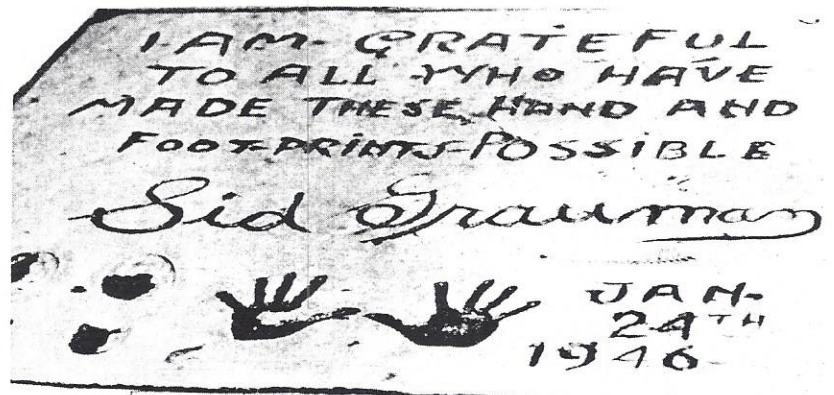 I-AM-GRATEFUL
TO ALL WHO HAVE
MADE THESE HAND AND
FOOT-PRINTS-POSSIBLE
Sid Grauman
JAN-
24TH
1946